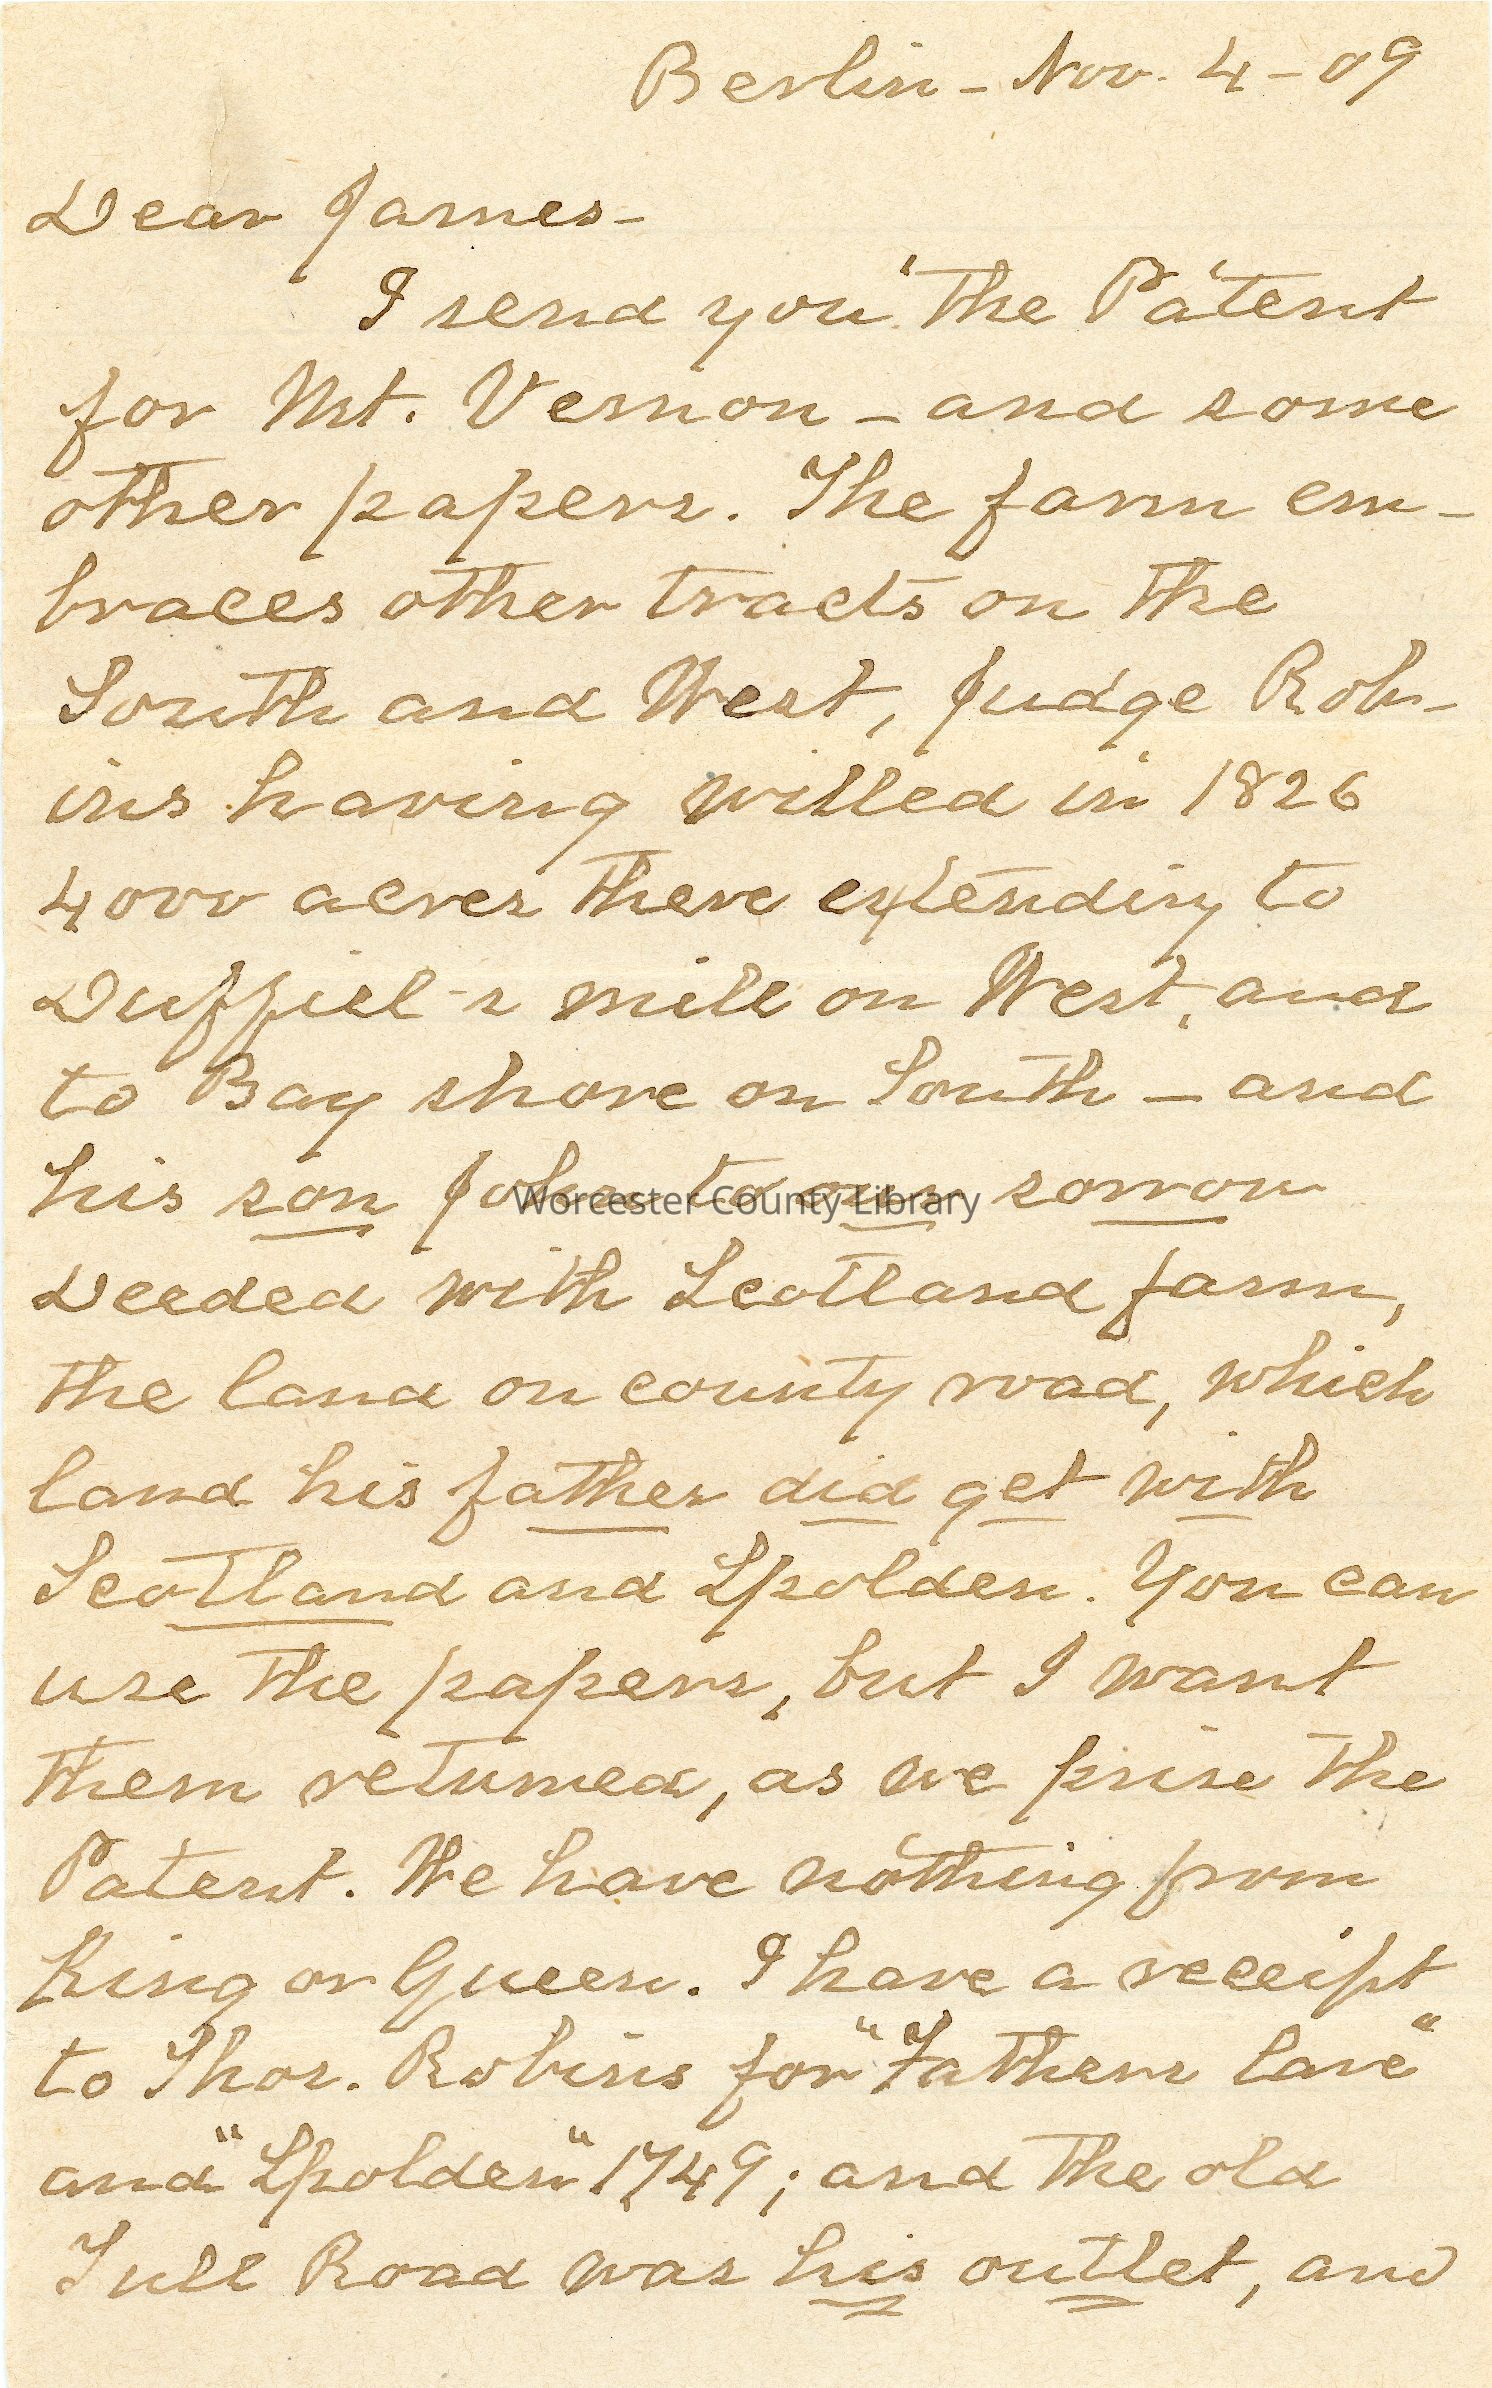 Berlin - Nov. 4 - 09
Dear James -
I send you "the Patent
for Mt. Vernon - and some
other papers. The farm em-
braces other tracts on the
South and West, Judge Rob-
ins having willed in 1826
4000 acres there extending to
Duffiel-s mill on West, and
to Bay shore on South - and
his son John to our sorrow
Deeded with Scotland farm,
the land on county road, which
land his father did get with
Scotland and Spolden. You can
use the papers, but I want
them returned, as we prise the
Patent. We have nothing from
King or Queen. I have a receipt
to Thos. Robins for "Fathers Care"
and "Spolden" 1749; and the old
Tull Road was his outlet, and
Worcester County Library